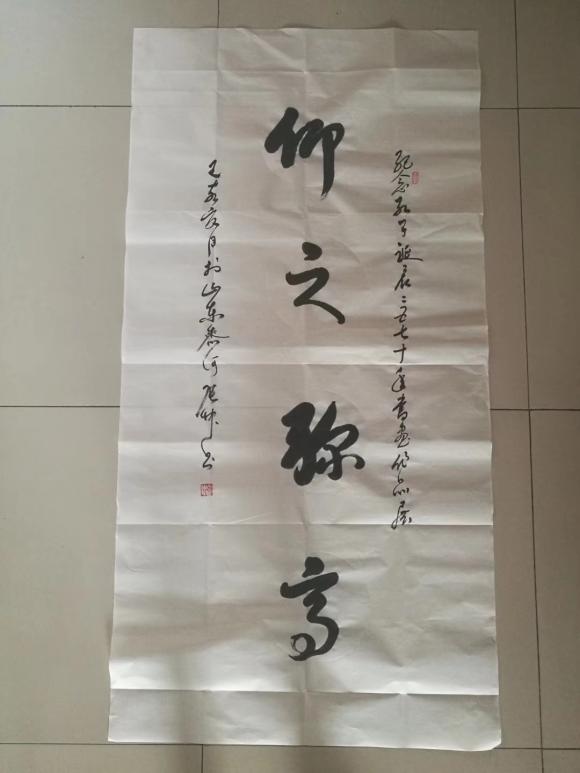 纪念孔子诞辰二五七十年书画作品展
仰之弥高
己亥夏月于山东齐河书